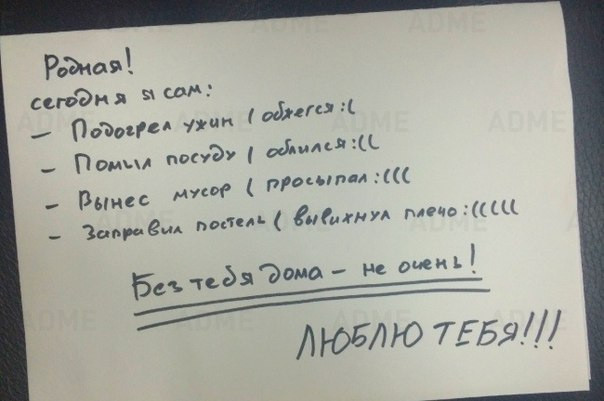 Родная!
сегодня я сам:
- Подогрел ужин ( обжегся :(
- Помыл посуду ( облился :((
- Вынес мусор ( просыпал :(((
- Заправил постель ( вывихнул плечо :(((((
Без тебя дома - не очень!
ЛЮБЛЮ ТЕБЯ!!!
ADME
ADME
ADME
ADME
ADME